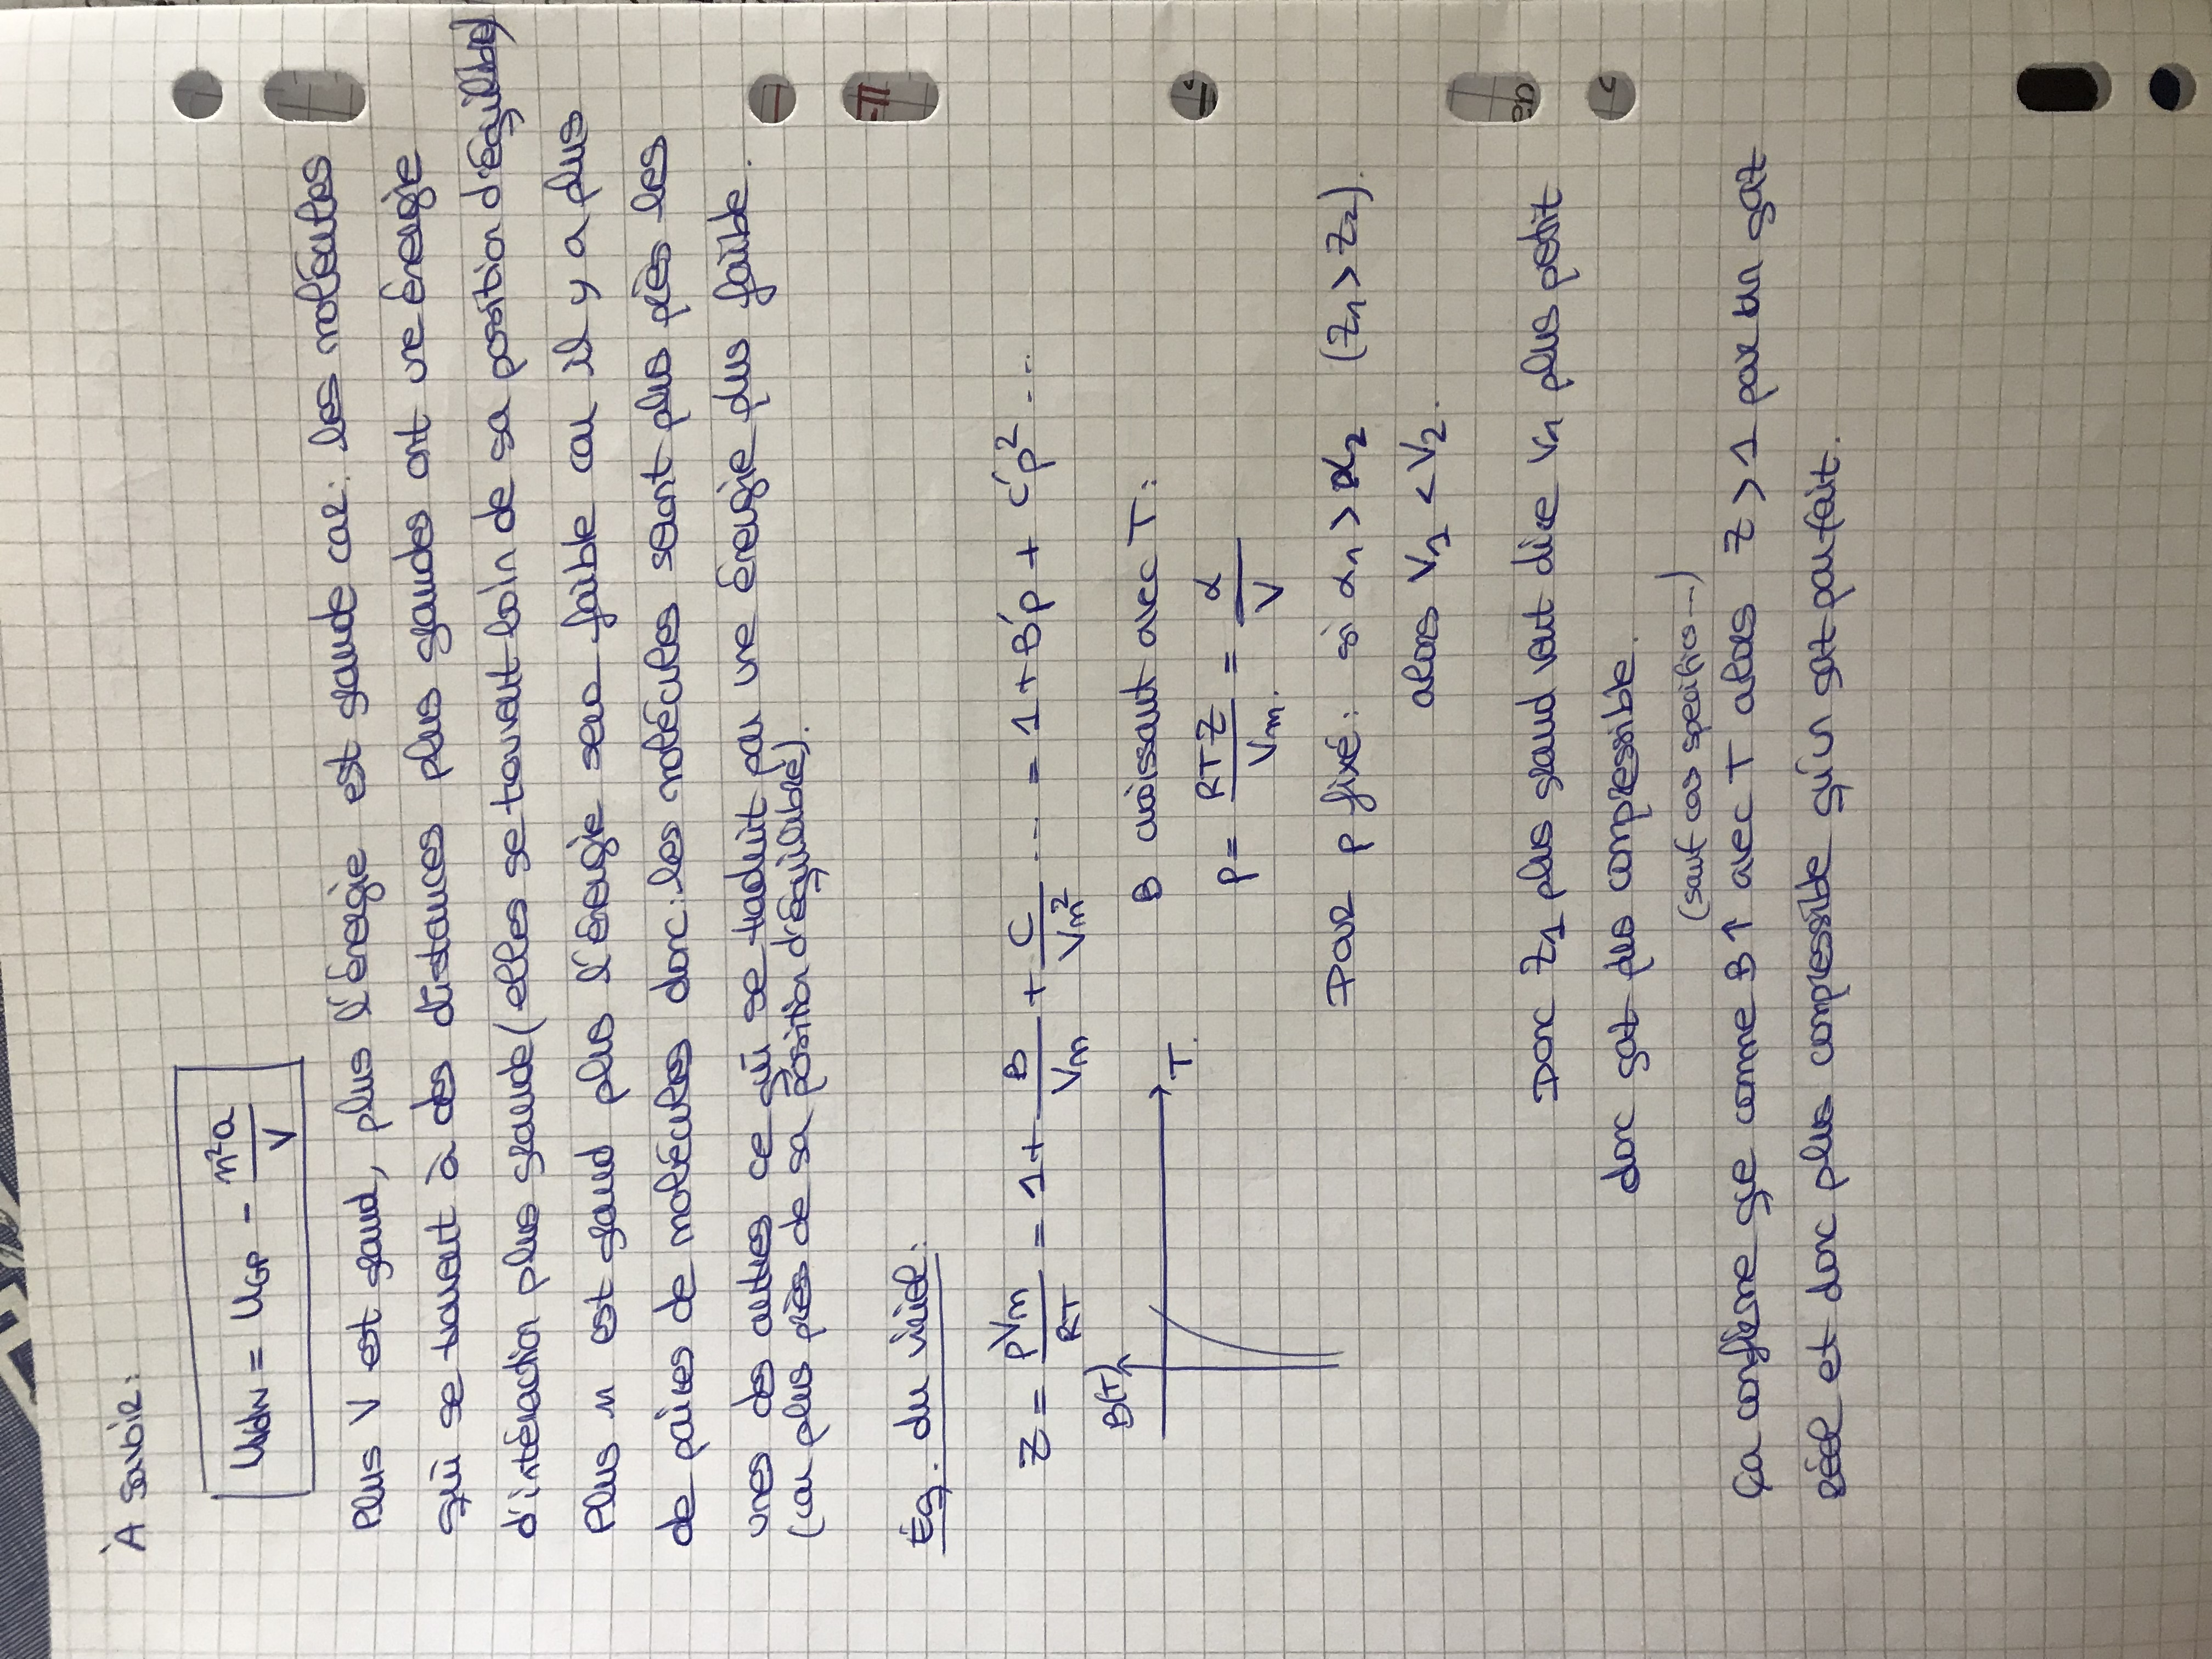 À savoir:
UVdW = UGP - n²a/V
Plus V est grand, plus l'énergie est grande car: les molécules
qui se trouvent à des distances plus grandes ont une énergie
d'intéraction plus grande (elles se trouvent loin de sa position d'équilibre)
Plus n est grand plus l'énergie sera faible car il y a plus
de paires de molécules donc: les molécules seront plus près les
unes des autres ce qui se traduit par une énergie plus faible.
(car plus près de sa position d'équilibre).
Éq. du viriel:
Z = pVm/RT = 1 + B/Vm + C/Vm² ... = 1 + B'p + C'p² ...
B(T)
T.
B croissant avec T:
p = RTZ/Vm. = α/V
Pour p fixé: si α1 > α2 (Z1 > Z2).
alors V1 < V2.
Donc Z1 plus grand veut dire V1 plus petit
donc gaz plus compressible.
(sauf cas specifics...)
Ça confirme que comme B↑ avec T alors Z > 1 pour un gaz
réel et donc plus compressible qu'un gaz parfait.